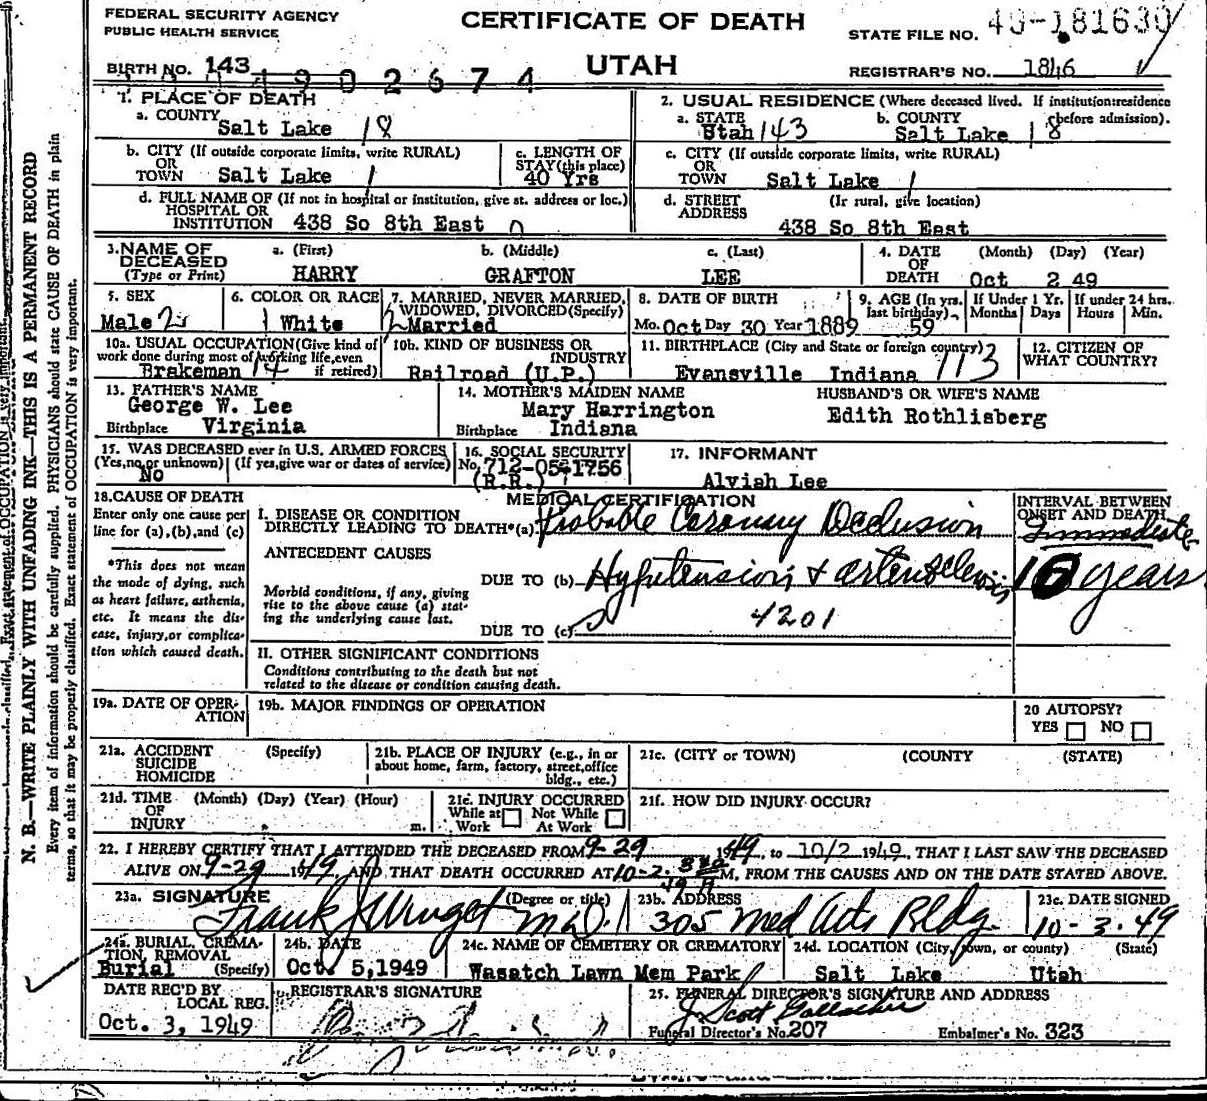 FEDERAL SECURITY AGENCY
PUBLIC HEALTH SERVICE
CERTIFICATE OF DEATH
UTAH
STATE FILE NO. 49-181630
BIRTH NO. 143
1902674
REGISTRAR'S NO. 1846
1. PLACE OF DEATH
a. COUNTY
Salt Lake 18
2. USUAL RESIDENCE (Where deceased lived. If institution: residence before admission).
a. STATE
Utah 143
b. COUNTY
Salt Lake 18
b. CITY (If outside corporate limits, write RURAL)
OR
TOWN Salt Lake 1
c. LENGTH OF
STAY (this place)
40 Yrs
c. CITY (If outside corporate limits, write RURAL)
OR
TOWN Salt Lake 1
d. FULL NAME OF (If not in hospital or institution, give st. address or loc.)
HOSPITAL OR
INSTITUTION 438 So 8th East 0
d. STREET (If rural, give location)
ADDRESS
438 So 8th East
3. NAME OF
DECEASED
(Type or Print)
a. (First)
HARRY
b. (Middle)
GRAFTON
c. (Last)
LEE
4. DATE
OF
DEATH
(Month) (Day) (Year)
Oct 2 49
5. SEX
Male 2
6. COLOR OR RACE
1 White
7. MARRIED, NEVER MARRIED,
WIDOWED, DIVORCED (Specify)
2 Married
8. DATE OF BIRTH
Mo. Oct Day 30 Year 1889
9. AGE (In yrs.
last birthday)
59
If Under 1 Yr.
Months Days
If under 24 hrs.
Hours Min.
10a. USUAL OCCUPATION (Give kind of
work done during most of working life, even
if retired)
Brakeman 14
10b. KIND OF BUSINESS OR
INDUSTRY
Railroad (U.P.)
11. BIRTHPLACE (City and State or foreign country)
Evansville Indiana 113
12. CITIZEN OF
WHAT COUNTRY?
13. FATHER'S NAME
George W. Lee
Birthplace Virginia
14. MOTHER'S MAIDEN NAME
Mary Harrington
Birthplace Indiana
HUSBAND'S OR WIFE'S NAME
Edith Rothlisberg
15. WAS DECEASED ever in U.S. ARMED FORCES
(Yes, no, or unknown) (If yes, give war or dates of service)
No
16. SOCIAL SECURITY
No. 712-05-1756
(R.R.)
17. INFORMANT
Alviah Lee
18. CAUSE OF DEATH
Enter only one cause per
line for (a), (b), and (c)
*This does not mean
the mode of dying, such
as heart failure, asthenia,
etc. It means the dis-
ease, injury, or complica-
tion which caused death.
MEDICAL CERTIFICATION
I. DISEASE OR CONDITION
DIRECTLY LEADING TO DEATH* (a) Probable Coronary Occlusion
INTERVAL BETWEEN
ONSET AND DEATH
Immediate
ANTECEDENT CAUSES
DUE TO (b) Hypetension & arterosclerosis
16 years
Morbid conditions, if any, giving
rise to the above cause (a) stat-
ing the underlying cause last.
4201
DUE TO (c)
II. OTHER SIGNIFICANT CONDITIONS
Conditions contributing to the death but not
related to the disease or condition causing death.
19a. DATE OF OPER-
ATION
19b. MAJOR FINDINGS OF OPERATION
20 AUTOPSY?
YES NO
21a. ACCIDENT
SUICIDE
HOMICIDE
(Specify)
21b. PLACE OF INJURY (e.g., in or
about home, farm, factory, street, office
bldg., etc.)
21c. (CITY or TOWN) (COUNTY) (STATE)
21d. TIME (Month) (Day) (Year) (Hour)
OF
INJURY m.
21e. INJURY OCCURRED
While at Work Not While At Work
21f. HOW DID INJURY OCCUR?
22. I HEREBY CERTIFY THAT I ATTENDED THE DECEASED FROM 9-29 1949, to 10/2 1949, THAT I LAST SAW THE DECEASED
ALIVE ON 9-29 1949, AND THAT DEATH OCCURRED AT 10-2- M, FROM THE CAUSES AND ON THE DATE STATED ABOVE.
23a. SIGNATURE (Degree or title)
Frank J M.D.
23b. ADDRESS
305 Med Arts Bldg.
23c. DATE SIGNED
10-3-49
24a. BURIAL, CREMA-
TION, REMOVAL
Burial (Specify)
24b. DATE
Oct. 5, 1949
24c. NAME OF CEMETERY OR CREMATORY
Wasatch Lawn Mem Park
24d. LOCATION (City, town, or county) (State)
Salt Lake Utah
DATE REC'D BY
LOCAL REG.
Oct. 3, 1949
REGISTRAR'S SIGNATURE
25. FUNERAL DIRECTOR'S SIGNATURE AND ADDRESS
J. Scott Gallacher
Funeral Director's No. 207
Embalmer's No. 323
N. B.—WRITE PLAINLY WITH UNFADING INK—THIS IS A PERMANENT RECORD
Every item of information should be carefully supplied. PHYSICIANS should state CAUSE OF DEATH in plain
terms, so that it may be properly classified. Exact statement of OCCUPATION is very important.